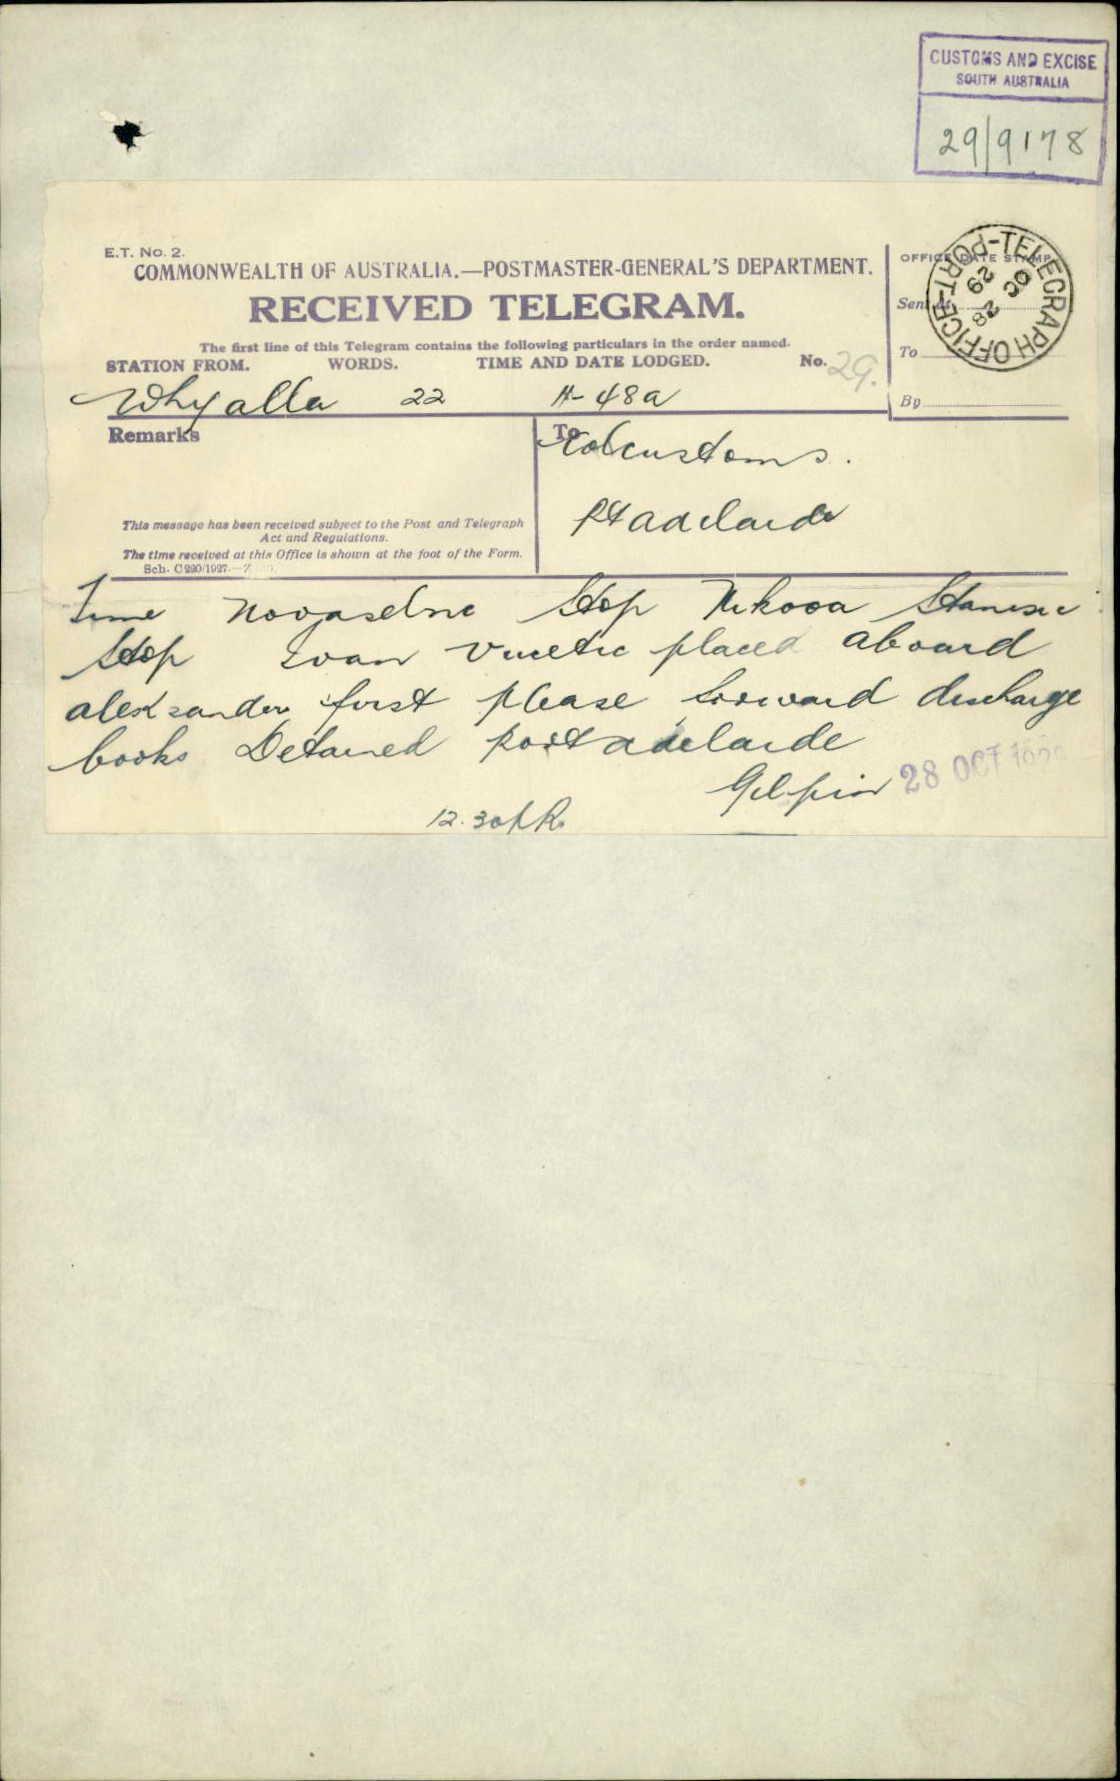 CUSTOMS AND EXCISE
SOUTH AUSTRALIA
29/9178
E.T. No. 2.
COMMONWEALTH OF AUSTRALIA.—POSTMASTER-GENERAL'S DEPARTMENT.
RECEIVED TELEGRAM.
The first line of this Telegram contains the following particulars in the order named.
STATION FROM. WORDS. TIME AND DATE LODGED. No. 29.
OFFICE DATE STAMP
Sent at
To
By
PORT-OFFICE-TELEGRAPH OFFICE
28 OC 29
Whyalla 22 11-48a
Remarks
To
Colcustoms.
Pt Adelaide
This message has been received subject to the Post and Telegraph
Act and Regulations.
The time received at this Office is shown at the foot of the Form.
Sch. C 220/1927.—
Novaselne Stop Stanisic
Stop Ivan Vucetic placed aboard
aleksander first please forward discharge
books Detained Port adelaide
Gilpin
28 OCT 1929
12.30p